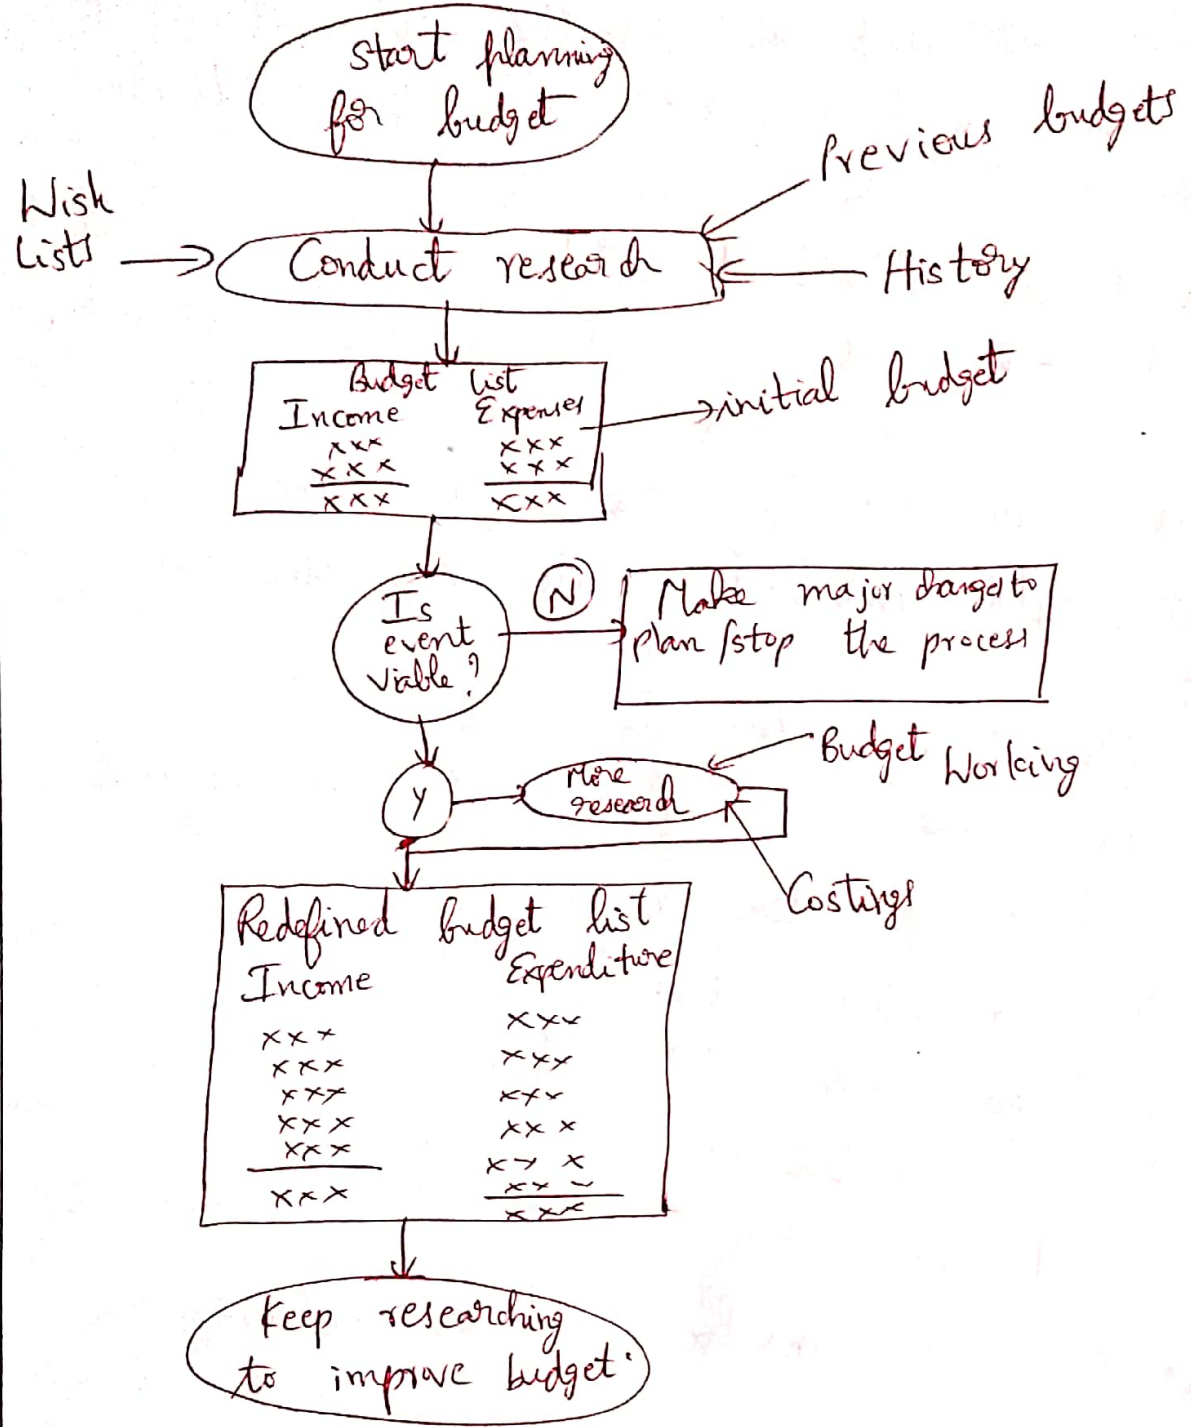 Start planning
for budget
Previous budgets
Wish
Lists
Conduct research
History
Budget list
Income Expenses
xxx xxx
xxx xxx
xxx xxx
initial budget
Is
event
Viable?
N
Make major changes to
plan/stop the process
Y
More
research
Budget Working
Costings
Redefined budget list
Income Expenditure
xxx xxx
xxx xxx
xxx xxx
xxx xxx
xxx xxx
xxx
xxx xxx
Keep researching
to improve budget.